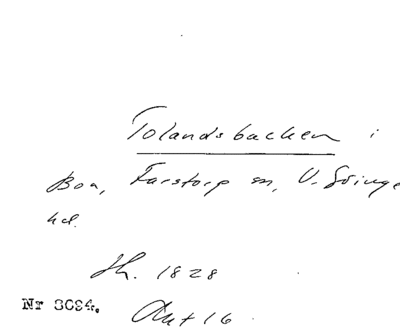 Tolandsbacken i
Boa, Farstorp sn, V. Göinge
hd.
Sk. 1828
Nr 3094. Akt 16